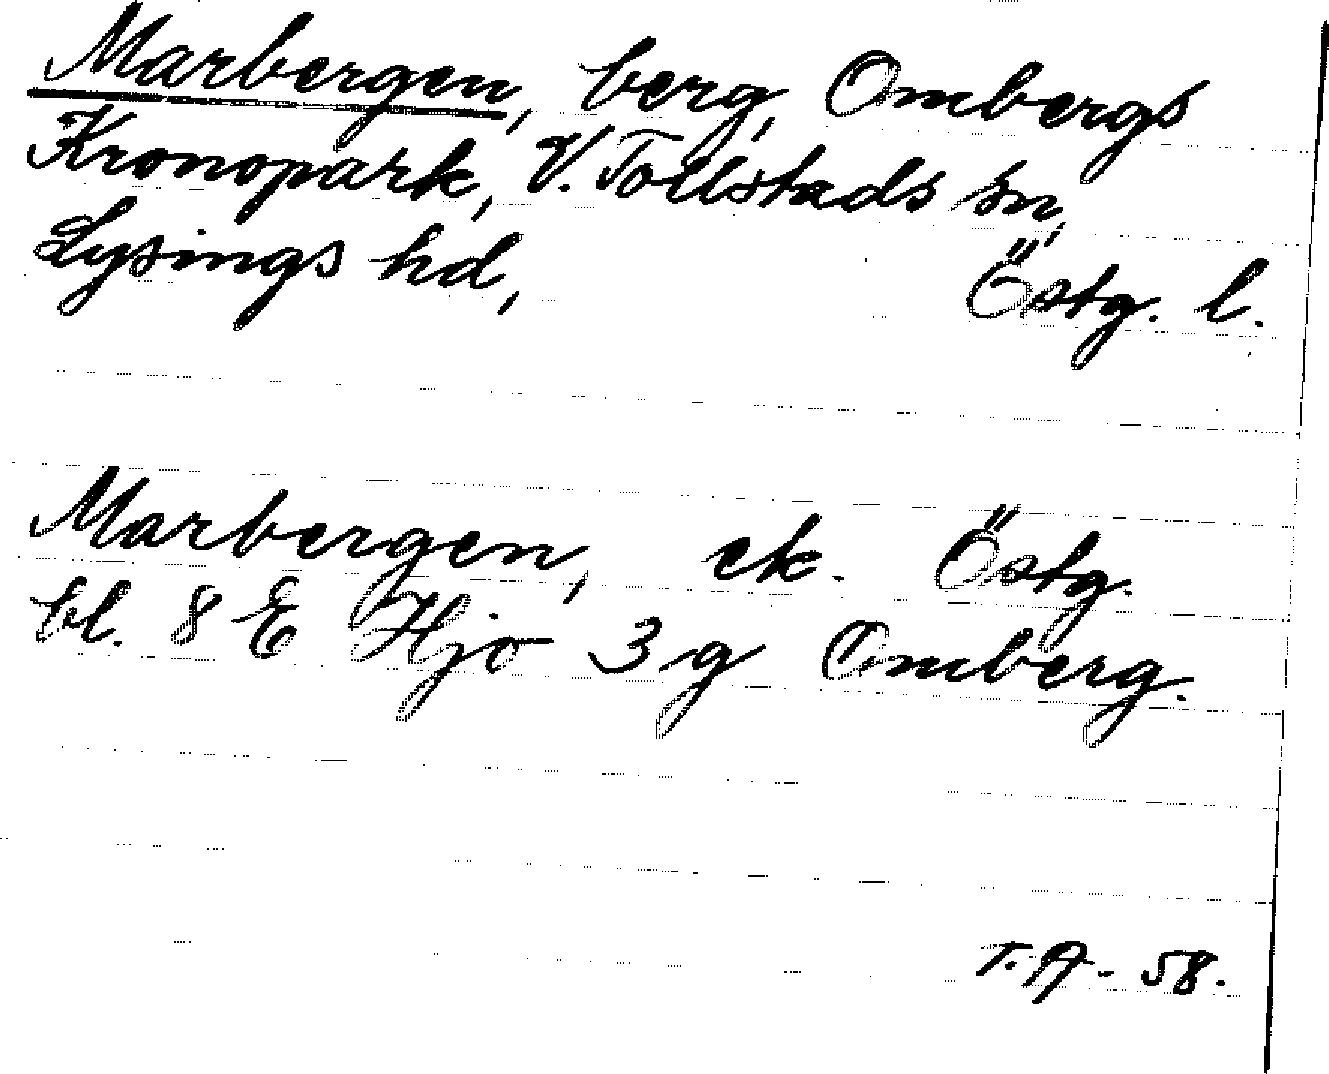 Marbergen, berg, Ombergs
Kronopark, V. Tollstads sn,
Lysings hd, Östg. l.
Marbergen, ek. Östg.
bl. 8 E Hjo 3 g Omberg.
T. A - 58.